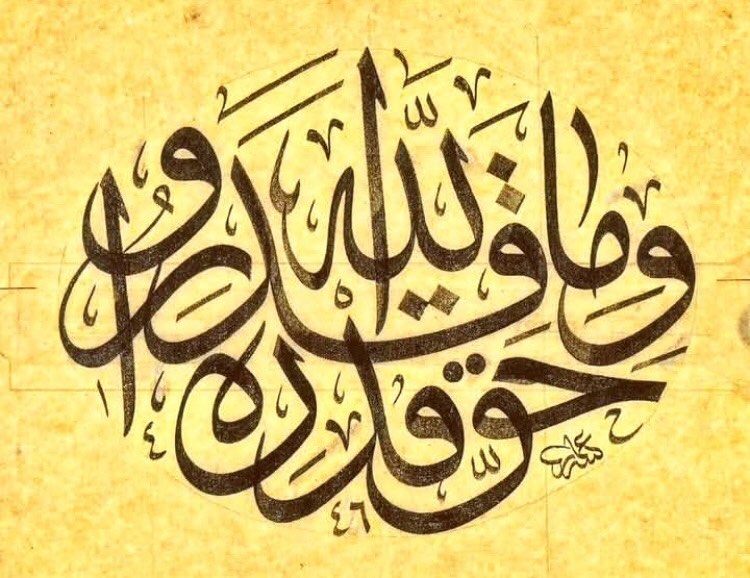 وَمَا قَدَرُوا اللّٰهَ
حَقَّ قَدْرِهِ
٤٦